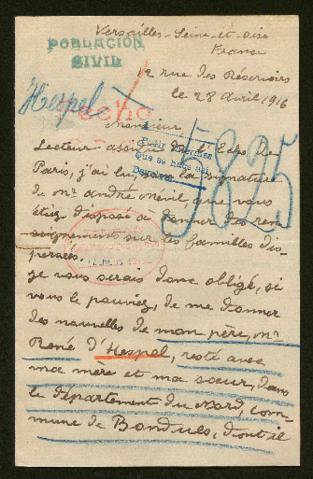 Versailles-Seine-et-Oise
France
POBLACIÓN
CIVIL
12 rue des Réservoirs
le 28 avril 1916
Hespel
echo
5825
Monsieur
Lecteur assidu de l'Echo de
Paris, j'ai lu, sous la signature
de Mr André Mévil que vous
étiez disposé à donner des ren-
seignements sur les familles dis-
persées.
je vous serais donc obligé, si
vous le pouviez, de me donner
des nouvelles de mon père, Mr
René d'Hespel, resté avec
ma mère et ma sœur, dans
le département du Nord, com-
mune de Bondues, dont il